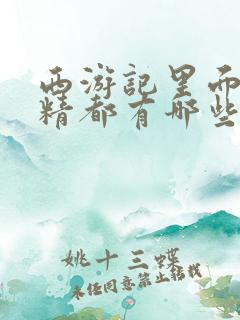 西游记里面
精都有哪些
姚十三蝶
未经同意禁止转载